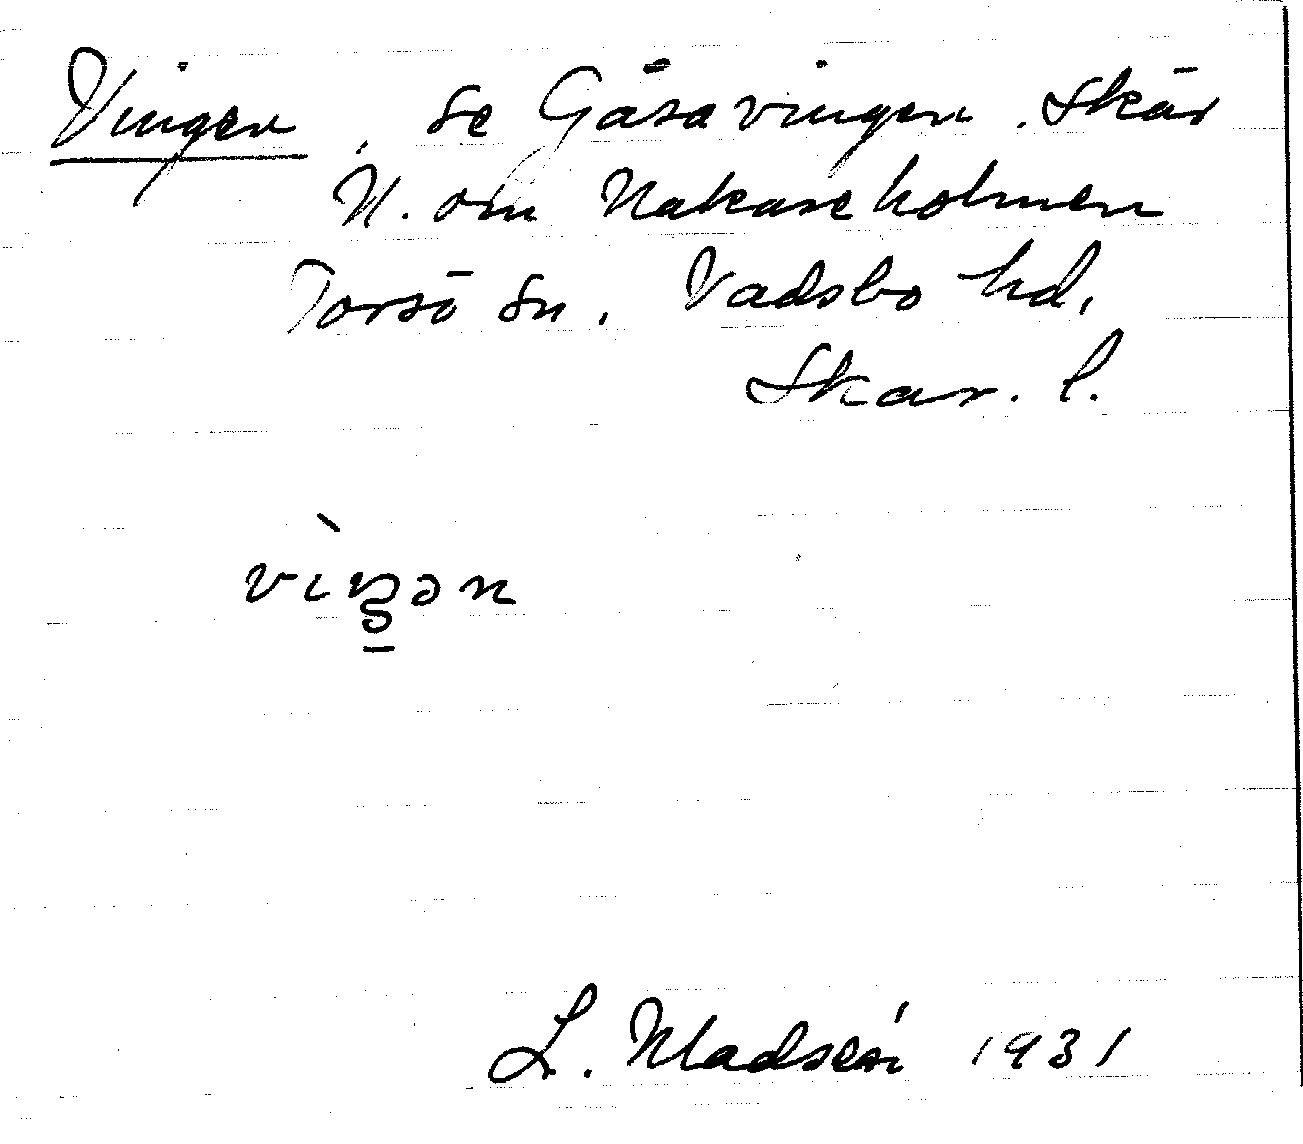 Vingen, se Gåsavingen. Skär
N. om Nakaseholmen
Torsö sn. Vadsbo hd,
Skar. l.
vìŋən
L. Madsén 1931